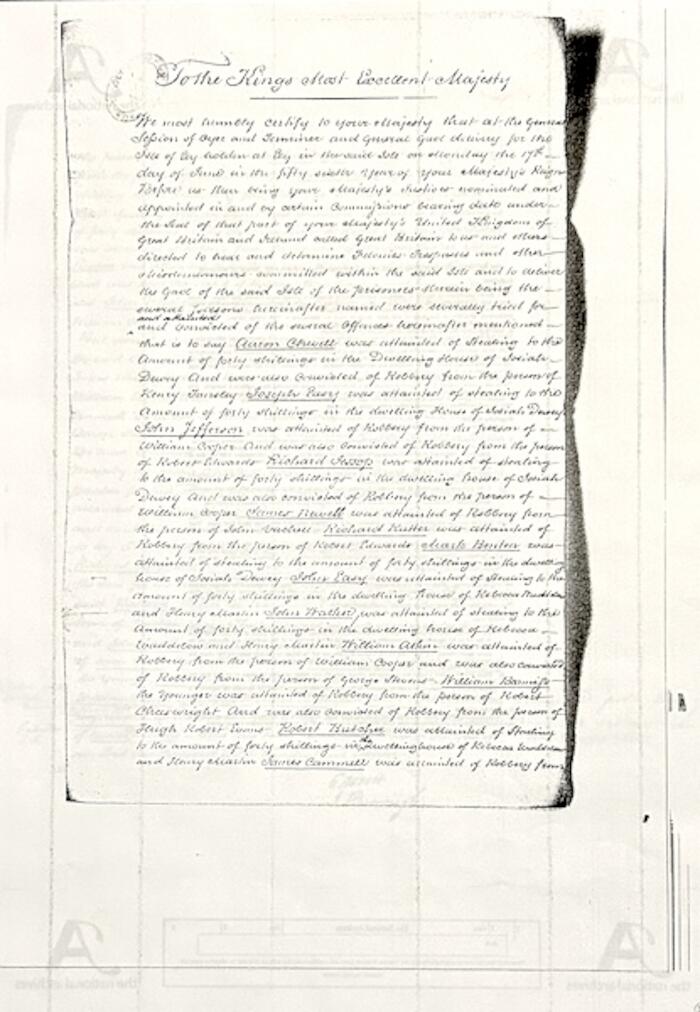 To the Kings Most Excellent Majesty
We most humbly certify to your Majesty that at the General
Session of Oyer and Terminer and General Gaol delivery for the
Isle of Ely holden at Ely in the said Isle on Monday the 17th
day of June in the fifty sixth Year of Your Majesty's Reign
Before us then being your Majesty's Justices nominated and
appointed in and by certain Commissions bearing date under
the Seal of that part of your Majesty's United Kingdom of
Great Britain and Ireland called Great Britain to us and others
directed to hear and determine Felonies Trespasses and other
Misdemeanours committed within the said Isle and to deliver
the Gaol of the said Isle of the prisoners therein being the
several persons hereinafter named were severally tried for
and attainted
and convicted of the several Offences hereinafter mentioned
that is to say Aaron Chevell was attainted of Stealing to the
Amount of forty shillings in the Dwelling House of Josiah
Dewey And was also convicted of Robbery from the person of
Henry Tansley Joseph Easy was attainted of stealing to the
Amount of forty shillings in the dwelling House of Josiah Dewey
John Jefferson was attainted of Robbery from the person of
William Cooper And was also convicted of Robbery from the person
of Robert Edwards Richard Jessop was attainted of stealing
to the amount of forty shillings in the dwelling house of Josiah
Dewey And was also convicted of Robbery from the person of
William Cooper James Newell was attainted of Robbery from
the person of John Vachell Richard Rutter was attainted of
Robbery from the person of Robert Edwards Mark Benton was
attainted of stealing to the amount of forty shillings in the dwell
house of Josiah Dewey John Easy was attainted of Stealing to the
amount of forty shillings in the dwelling house of Rebecca Waddelow
and Henry Martin John Walker was attainted of stealing to the
Amount of forty shillings in the dwelling house of Rebecca
Waddelow and Henry Martin William Atkin was attainted of
Robbery from the person of William Cooper and was also convicted
of Robbery from the person of George Stevens William Beamiss
the Younger was attainted of Robbery from the person of Robert
Cheeswright And was also convicted of Robbery from the person of
Hugh Robert Evans Robert Butcher was attainted of Stealing
to the amount of forty shillings in the dwelling house of Rebecca Waddelow
and Henry Martin James Cammell was attainted of Robbery from
the national archives